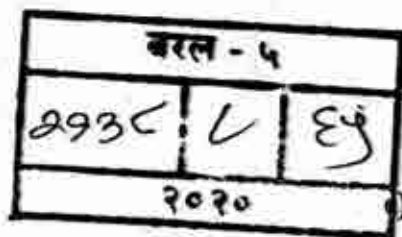 बरल - ५
२१३८ ८ ६५
२०२०